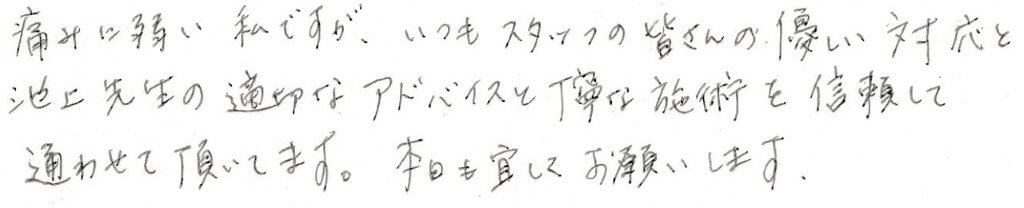 痛みに弱い私ですが、いつもスタッフの皆さんの優しい対応と
池上先生の適切なアドバイスと丁寧な施術を信頼して
通わせて頂いてます。本日も宜しくお願いします.